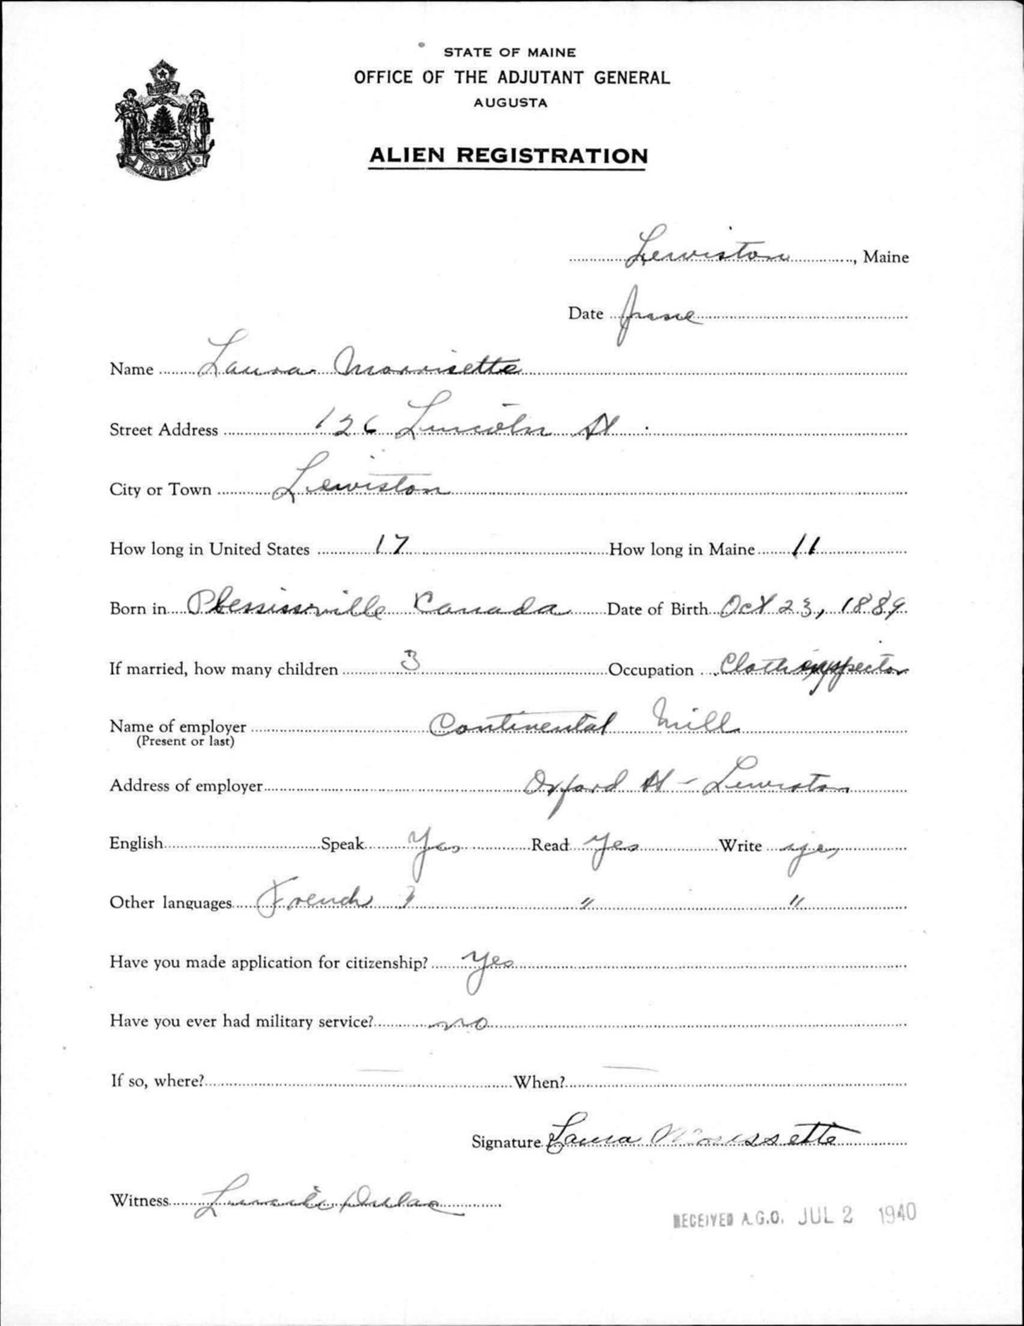 STATE OF MAINE
OFFICE OF THE ADJUTANT GENERAL
AUGUSTA
ALIEN REGISTRATION
MAINE
Lewiston, Maine
Date June
Name Laura Morrisette
Street Address 126 Lincoln St.
City or Town Lewiston
How long in United States 17 How long in Maine 11
Born in Plessisville Canada Date of Birth Oct 23, 1889
If married, how many children 3 Occupation Cloth inspector
Name of employer Continental Mill
(Present or last)
Address of employer Oxford St - Lewiston
English Speak Yes Read Yes Write yes
Other languages French " " "
Have you made application for citizenship? Yes
Have you ever had military service? no
If so, where? — When? —
Signature Laura Morissette
Witness Dulac
RECEIVED A.G.O. JUL 2 1940